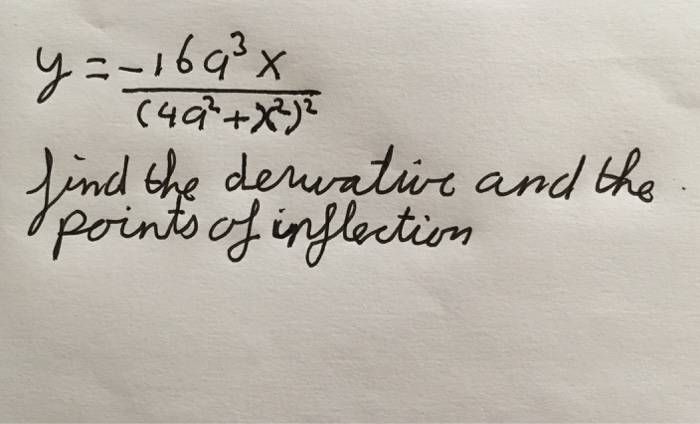 y = -16a³x
(4a²+x²)²
find the derivative and the
points of inflection